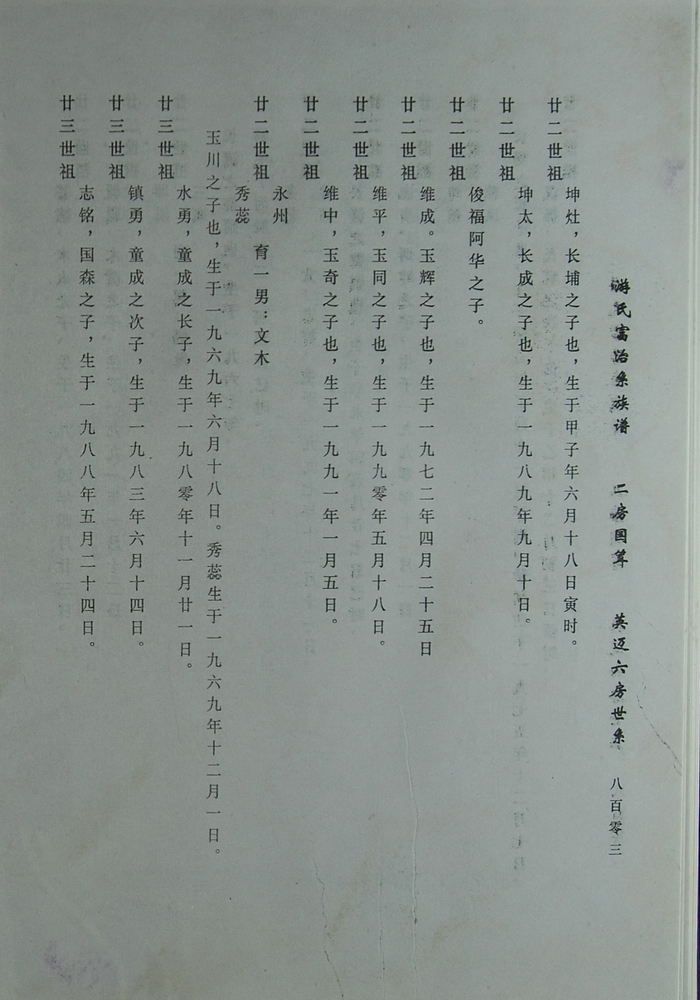 游氏富治系族谱 二房国算 英迈六房世系 八百零三
廿二世祖
坤灶，长埔之子也，生于甲子年六月十八日寅时。
廿二世祖
坤太，长成之子也，生于一九八九年九月十日。
廿二世祖
俊福阿华之子。
廿二世祖
维成。玉辉之子也，生于一九七二年四月二十五日
廿二世祖
维平，玉同之子也，生于一九九零年五月十八日。
廿二世祖
维中，玉奇之子也，生于一九九一年一月五日。
廿二世祖
永州
秀蕊 育一男：文木
玉川之子也，生于一九六九年六月十八日。秀蕊生于一九六九年十二月一日。
廿三世祖
水勇，童成之长子，生于一九八零年十一月廿一日。
廿三世祖
镇勇，童成之次子，生于一九八三年六月十四日。
廿三世祖
志铭，国森之子，生于一九八八年五月二十四日。